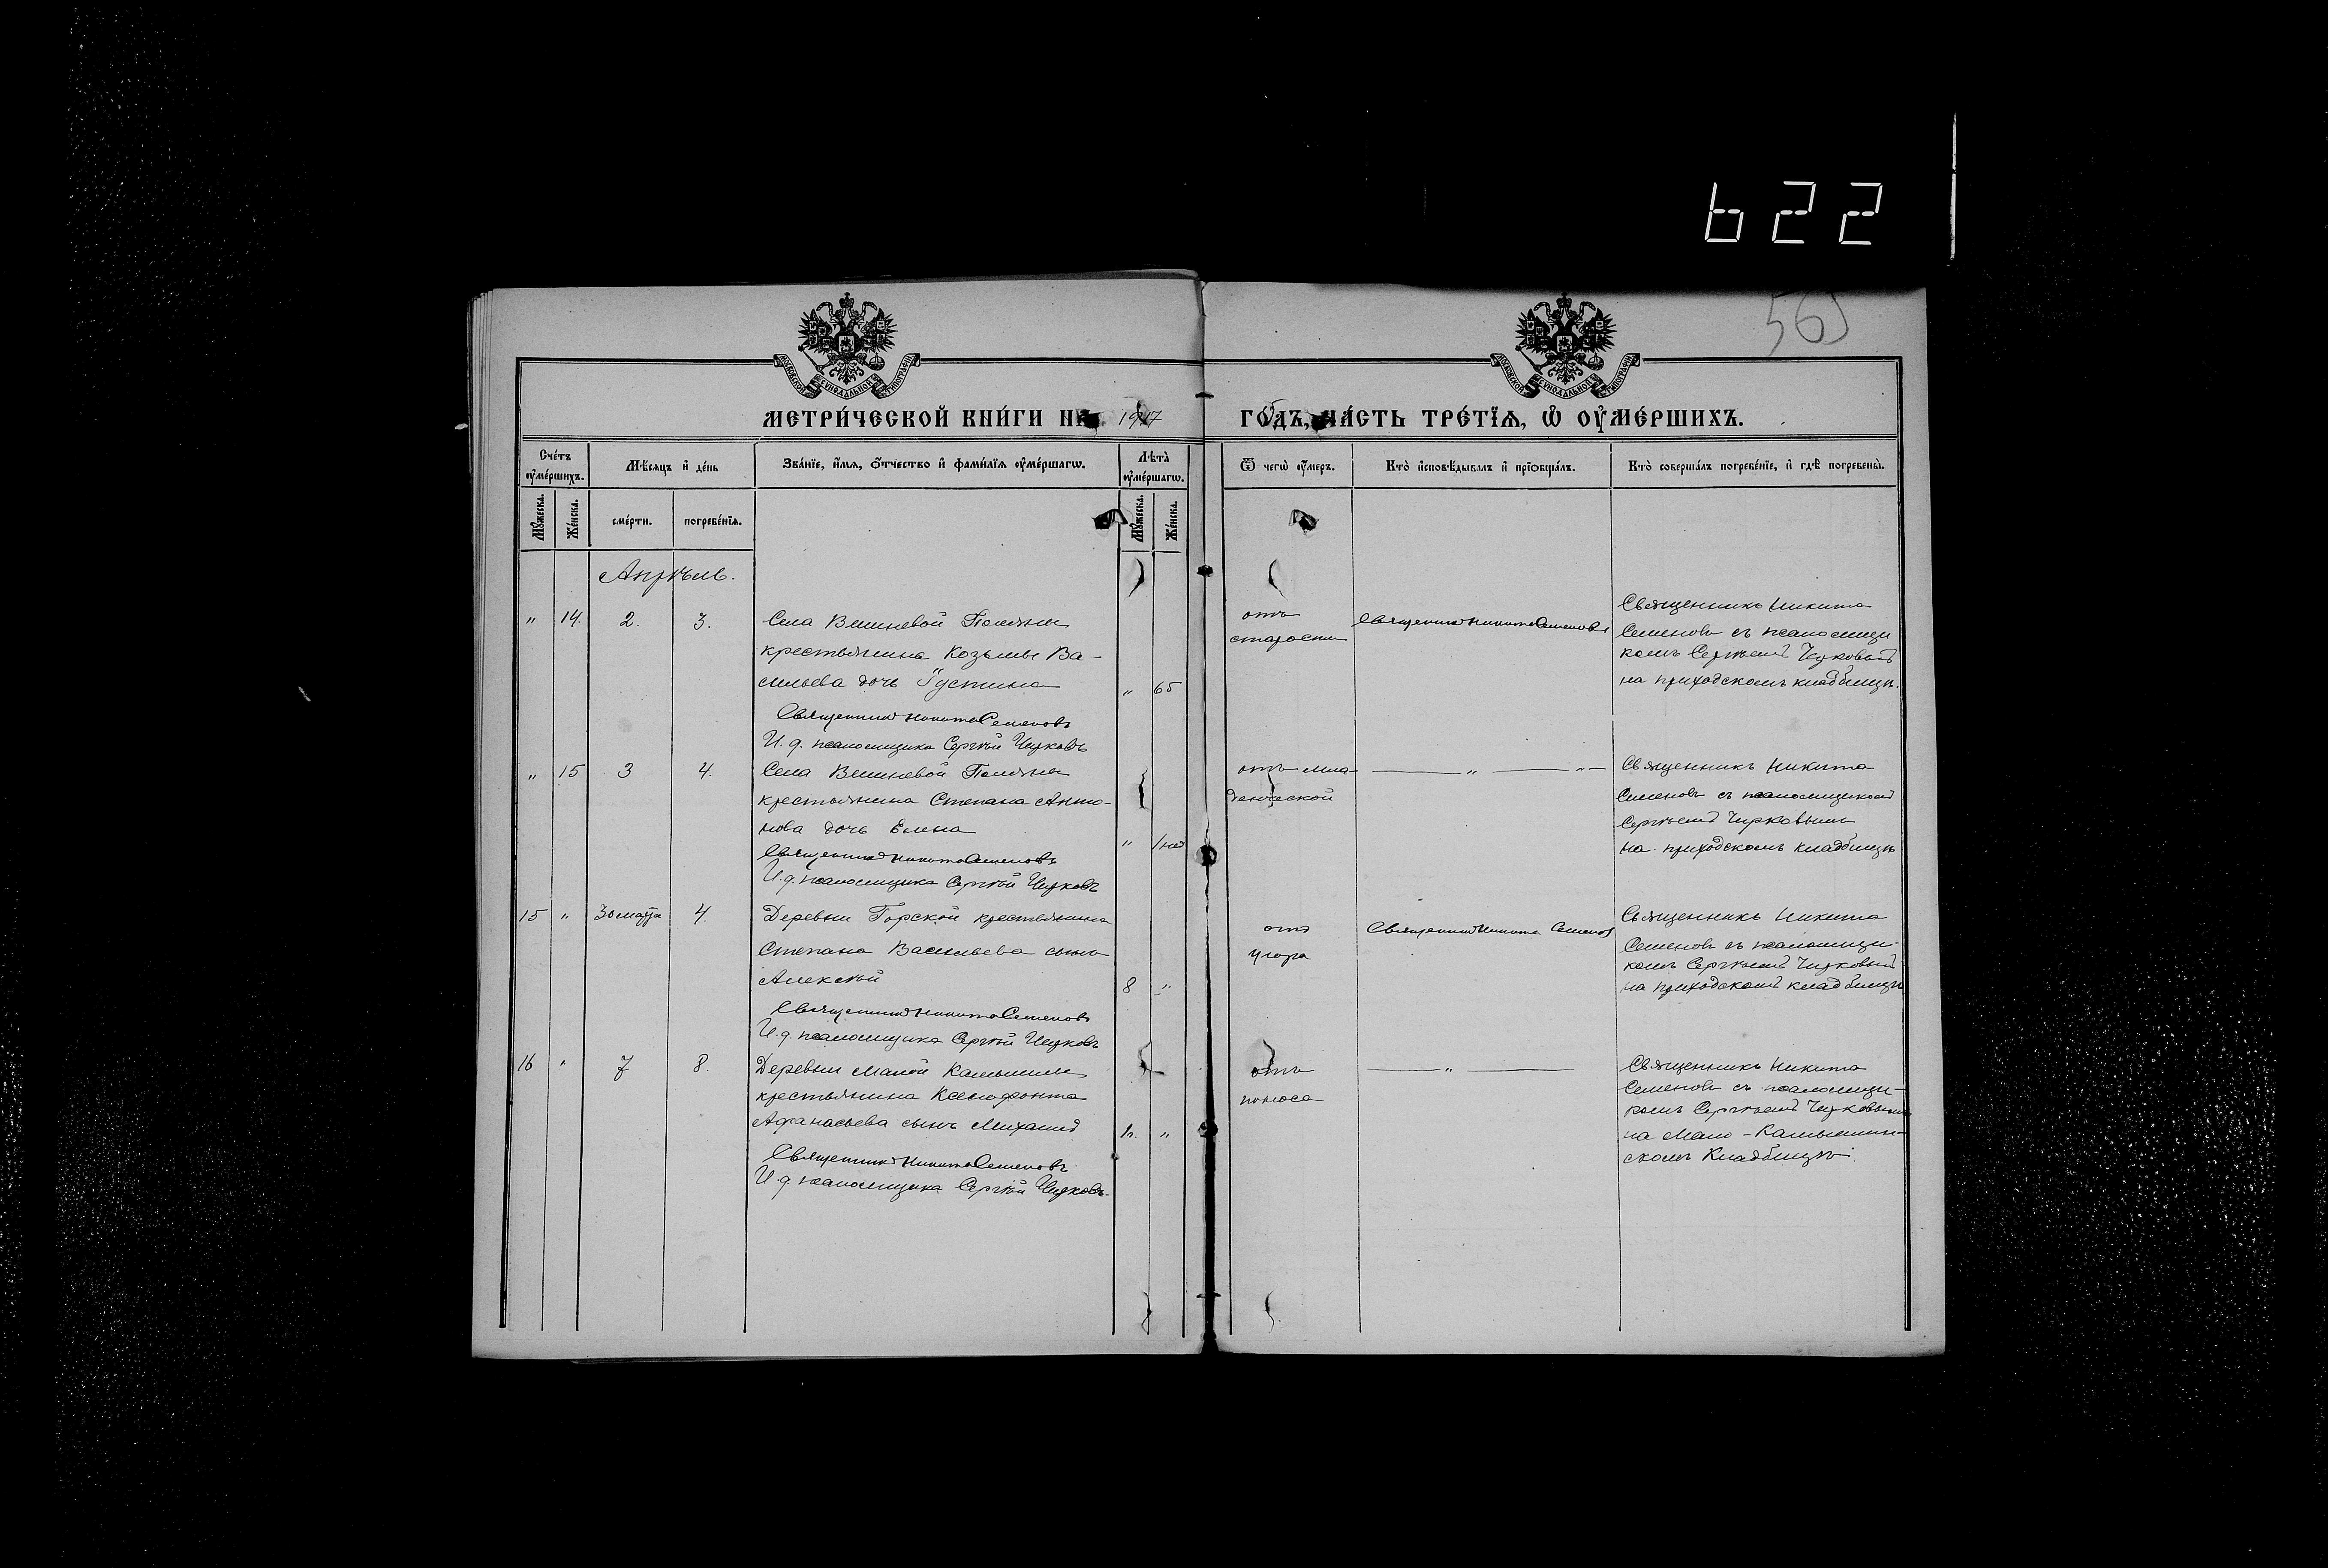 622
565
МОСКОВСКОЙ СѴНОДАЛЬНОЙ ТИПОГРАФІИ
МОСКОВСКОЙ СѴНОДАЛЬНОЙ ТИПОГРАФІИ
МЕТРИ́ЧЕСКОЙ КНИ́ГИ НА 1917 ГО́ДЪ, ЧА́СТЬ ТРЕ́ТЇѦ, Ѽ ОУ҆МЕ́РШИХЪ.
Сче́тъ оу҆ме́ршихъ.
Мѣ́сяцъ и҆ де́нь
Зва́нїе, и҆́мѧ, ѻ҆́тчество и҆ фами́лїѧ оу҆ме́ршагѡ.
Лѣ́та оу҆ме́ршагѡ.
Ѿ чегѡ̀ оу҆́меръ.
Кто̀ и҆сповѣ́дывалъ и҆ прїѡбща́лъ.
Кто̀ соверша́лъ погребе́нїе, и҆ гдѣ̀ погребены̀.
Мꙋ́жеска.
Же́нска.
сме́рти.
погребе́нїѧ.
Мꙋ́жеска.
Же́нска.
Апрѣль.
" 14. 2. 3.
Села Вишневой Поляны
крестьянина Козьмы Ва-
сильева дочь Густина
" 65
Священникъ Никита Семеновъ
И. д. псаломщика Сергѣй Чирковъ
отъ
старости
Священникъ Никита Семеновъ
Священникъ Никита
Семеновъ съ псаломщи
комъ Сергѣемъ Чирковымъ
на приходскомъ кладбищѣ.
" 15 3 4.
Села Вишневой Поляны
крестьянина Степана Анто-
нова дочь Елена
" 1 нед
Священникъ Никита Семеновъ
И. д. псаломщика Сергѣй Чирковъ
отъ мла-
денческой
" "
Священникъ Никита
Семеновъ съ псаломщикомъ
Сергѣемъ Чирковымъ
на приходскомъ кладбищѣ
15 " 30 марта 4.
Деревни Горской крестьянина
Степана Васильева сынъ
Алексѣй
8 "
Священникъ Никита Семеновъ
И. д. псаломщика Сергѣй Чирковъ
отъ
Священникъ Никита Семеновъ
Священникъ Никита
Семеновъ съ псаломщи-
комъ Сергѣемъ Чирковымъ
на приходскомъ кладбищѣ
16 " 7 8.
Деревни Малой Камышлы
крестьянина Ксенофонта
Афанасьева сынъ Михаилъ
1г. "
Священникъ Никита Семеновъ
И. д. псаломщика Сергѣй Чирковъ.
отъ
поноса
"
Священникъ Никита
Семеновъ съ псаломщи-
комъ Сергѣемъ Чирковымъ
на Мало-Камышлин-
скомъ кладбищѣ.